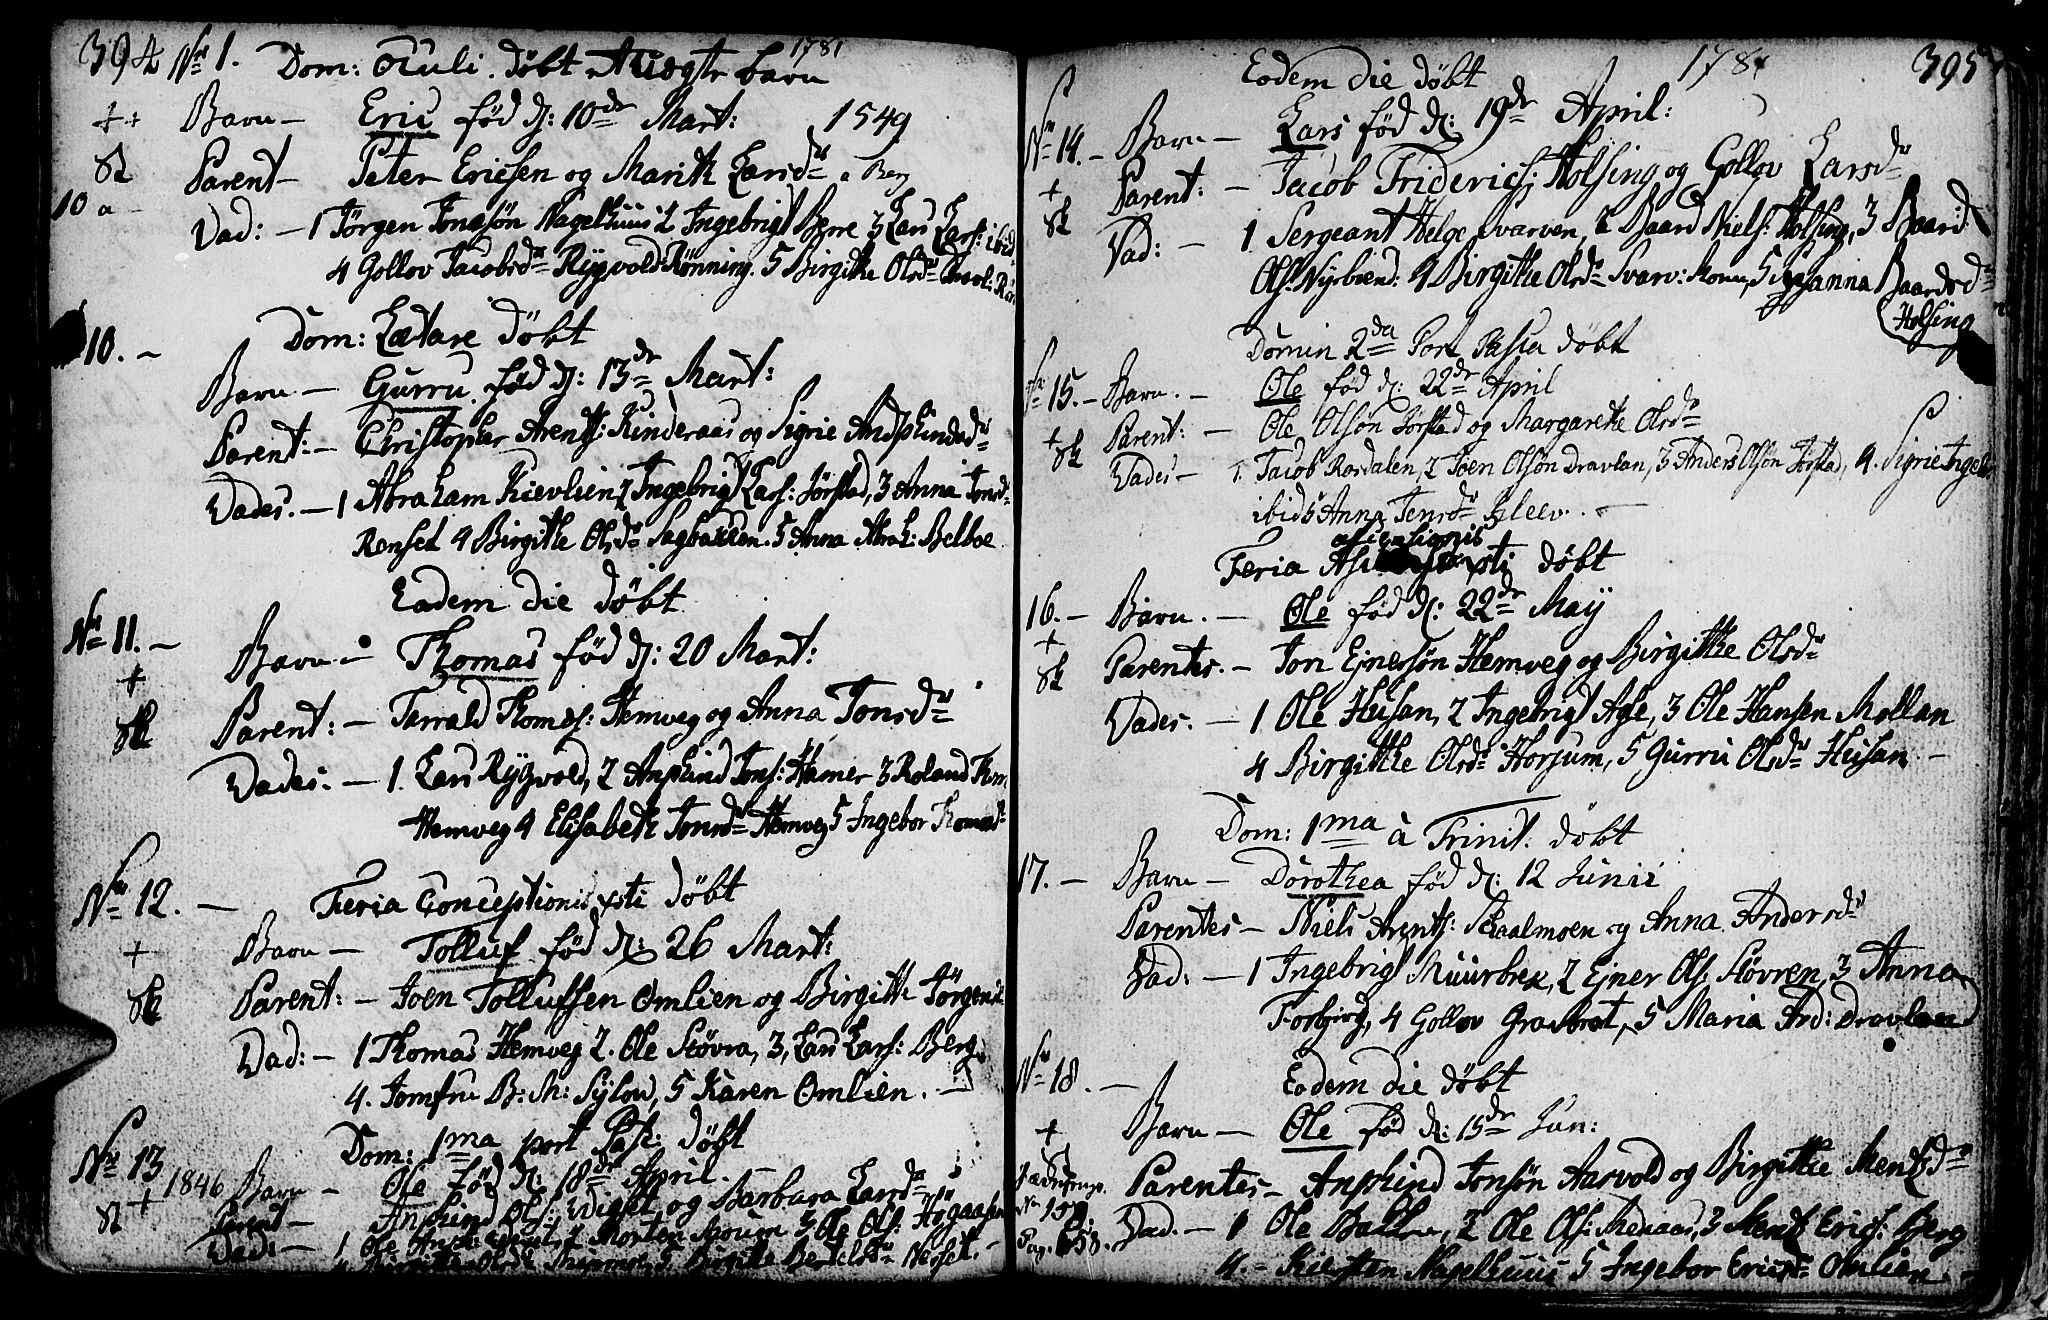 394 Nr 1. Dom: Oculi. døbt Ægte barn 1781
++ Barn — Eric fød d: 10de Mart: 1549
St Parent — Peter Ericsen og Marith Larsdr Berg
10 a - Vad: — 1 Jørgen Jonasøn Nagelhuus 2 Ingebrigt Berre 3 Lars Lars: ibid
4 Gollov Jacobsdr Rygvold Rønning. 5 Birgithe Olsdr
Dom: Lætare døbt
10. — Barn — Gurru fød d: 13de Mart:
Parent: — Christopher Arents: Kinderaas og Sigrie
Vades. — 1 Abraham Kievlien, 2 Ingebrigt Lars: Jørstad, 3 Anna Jonsdr
Renset 4 Birgithe Olsdr Sagbakken. 5 Anna Abrah: Belboe
Eodem die døbt
Nr 11. — Barn — Thomas fød d: 20 Mart:
+
St Parent: — Tarrald Thomes: Hemveg og Anna Jonsdr
Vades. — 1. Lars Rygvold, 2 Anphind Jons: Hamer 3 Roland Thom:
Hemveg 4 Elisabeth Jonsdr Hemveg 5 Ingebor Thomesdr
Nr 12. — Feria Conceptionis xsti døbt
+ Barn — Tolluf fød d: 26 Mart:
St Parent: — Joen Tollufsen Omlien og Birgitte Jørgensdr
Vad: — 1 Thomas Hemveg 2. Ole Støvra, 3, Lars Lars: Berg,
4. Jomfru B: M: Sylow, 5 Karen Omlien. —
Dom: 1ma post Pasc: døbt
Nr 13 1846 Barn — Ole fød d: 18de April.
St + Parent — Anphind Ols: og Barbara Larsdr
Vad: — 1 Ole 2 Morten 3 Ole Ols:
4 Birgitte Olsdr 5 Birgitte Bertelsdr
1781 395
Eodem die døbt
Nr 14. — Barn — Lars fød d: 19de April:
+ Parent: — Jacob Friderics: Holsing og Gollov Larsdr
St Vad: — 1 Sergeant Helge Svarven, 2 Baard Niels: Holsing, 3 Baard
Ols: 4 Birgithe Olsdr Svarv: 5 Susanna Baardsdr
Holsing
Domin 2da Post Pasca døbt
Nr 15. — Barn. — Ole fød d: 22de April
+ Parent: — Ole Olsøn Jørstad og Margarethe Olsdr
St Vades — 1. Jacob Rordalen, 2 Joen Olsøn Dravlan, 3 Anders Olsøn Jørstad, 4. Sigrie Ingeb
ibid 5 Anna Jensdr Kleev. —
Feria Ascensionis xsti døbt
16. — Barn. — Ole fød d: 22de May
+
St Parentes. — Jon Ejnersøn Hemveg og Birgithe Olsdr
Vades. — 1 Ole Husan, 2 Ingebrigt Age, 3 Ole Hansen Mollan
4 Birgitthe Olsdr Horjum, 5 Gurru Olsdr Husan. —
Dom: 1ma à Trinit. døbt
17. — Barn — Dorothea fød d: 12 Junii
Parentes — Niels Arents: Skaalmoen og Anna Andersdr
Vad: — 1 Ingebrigt Muurbrek, 2 Ejner Ols: Støvren, 3 Anna
Forbjord, 4 Gollov Grasbrot, 5 Maria And: Dravland
Nr 18. — Eodem die døbt
+ Barn — Ole fød d: 15de Jun:
Parentes — Anphind Jonsøn Aarvold og Birgithe Mentzdr
Pag: 658. Vad: — 1 Ole 2 Ole Ols: 3 Mentz Erics: Berg
4. — Kiersten Nagelhuus 5 Ingebor Ericsdr Omlien. —